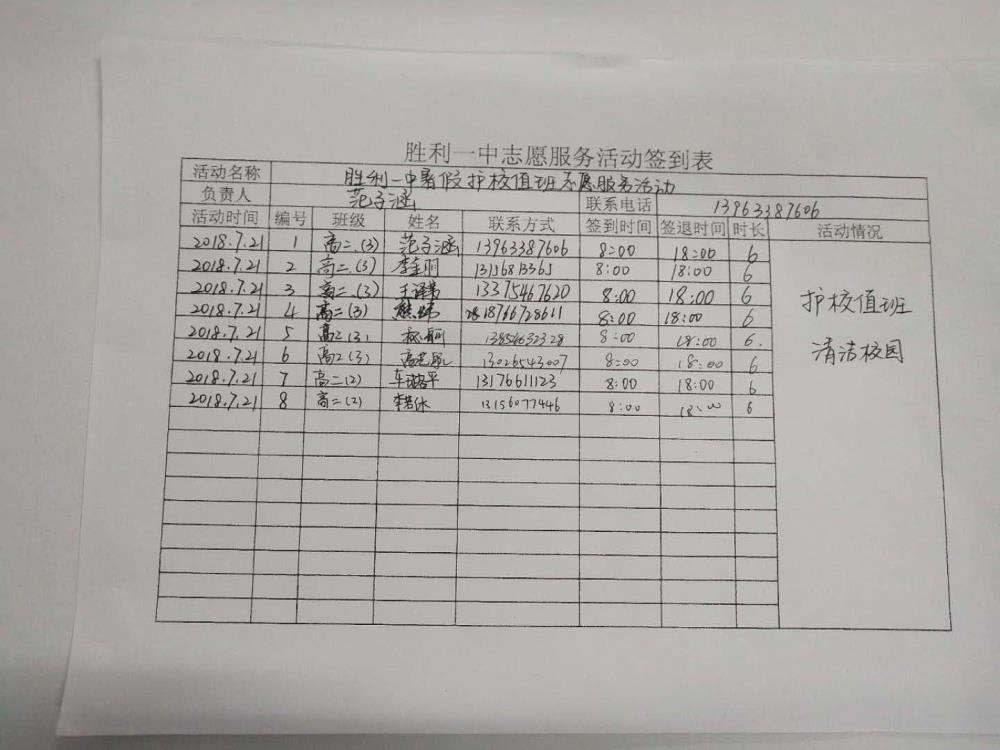 胜利一中志愿服务活动签到表
活动名称 胜利一中暑假护校值班志愿服务活动
负责人 范子涵 联系电话 13963387606
活动时间 编号 班级 姓名 联系方式 签到时间 签退时间 时长 活动情况
2018.7.21 1 高二.(3) 范子涵 13963387606 8:00 18:00 6
2018.7.21 2 高二.(3) 13156813365 8:00 18:00 6
2018.7.21 3 高二.(3) 13375467620 8:00 18:00 6 护校值班
2018.7.21 4 高二(3) 18766728611 8:00 18:00 6
2018.7.21 5 高二(3) 13854632328 8:00 18:00 6. 清洁校园
2018.7.21 6 高二(3) 13026543007 8:00 18:00 6
2018.7.21 7 高二(2) 13176611123 8:00 18:00 6
2018.7.21 8 高二(2) 13156077446 8:00 18:00 6